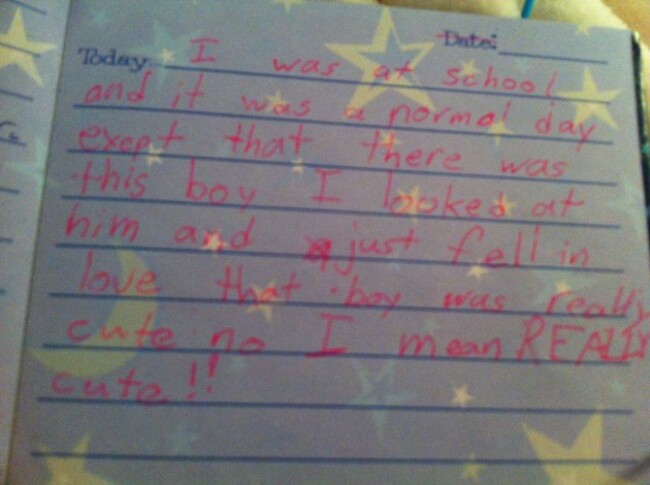 Date:
Today: I was at school
and it was a normal day
exept that there was
this boy I looked at
him and just fell in
love that boy was really
cute no I mean REALLY
cute!!